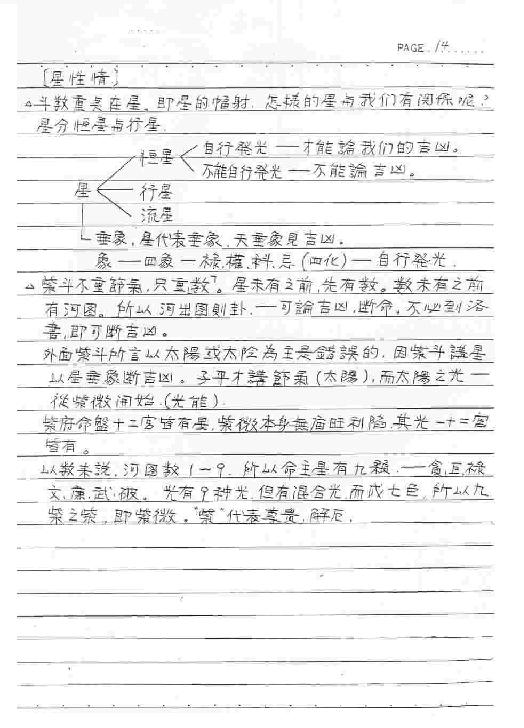 PAGE. 14
[星性情]
△斗数重点在星、即星的幅射. 怎樣的星与我们有関係呢?
星分恒星与行星.
恒星 自行発光 — 才能論我们的吉凶。
不能自行発光 — 不能論吉凶。
星 行星
流星
垂象,星代表垂象.天垂象見吉凶.
象 — 四象 — 祿.權.科.忌 (四化) — 自行発光.
△紫斗不重節氣,只重数. 星未有之前,先有数。数未有之前
有河図。所以河出図則卦. — 可論吉凶,断命,不必到洛
書,即可断吉凶。
外面紫斗所言以太陽或太陰為主是錯誤的. 因紫斗講星
以星垂象断吉凶。子平才講節氣(太陽),而太陽之光 —
從紫微開始.(光能).
紫府命盤十二宮皆有星,紫微本身無庙旺利陷.其光一十二宮
皆有。
以数来説,河図数1~9.所以命主星有九顆. — 貪.巨.祿
文.廉.武.破。光有9种光.但有混合光.而成七色.所以九
紫之紫,即紫微。"紫"代表尊貴,解厄.